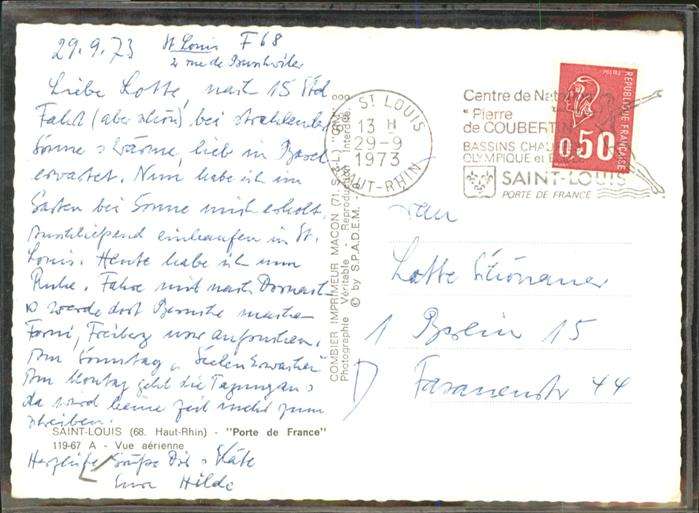 29.9.73 St. Louis F 68
2 rue de
Liebe Lotte, nach 15 Std
Fahrt (aber schön) bei
Sonne u. Wärme, lieb in Basel
erwartet. Nun habe ich im
Garten bei Sonne mich erholt.
Anschließend einkaufen in St.
Louis. Heute habe ich nun
Ruhe. Fahre mit nach
u. werde dort Besuche machen
Forri, Freiberg
Am Sonntag
Am Montag geht die Tagung an
da wird keine Zeit mehr zum
Schreiben.
SAINT-LOUIS (68. Haut-Rhin) - "Porte de France"
119-67 A - Vue aérienne
Herzliche Grüße Dir u. Käte
Eure Hilde
COMBIER IMPRIMEUR MACON (71, S.-&-L.) "CIM"
Photographie Véritable - Reproduction Interdite
© by S.P.A.D.E.M.
68 ST LOUIS
13 H
29-9
1973
HAUT-RHIN
Centre de
"Pierre
de COUBERTIN
BASSINS
OLYMPIQUE et
SAINT-LOUIS
PORTE DE FRANCE
REPUBLIQUE FRANÇAISE
0,50
Frau
Lotte Schönauer
1 Berlin 15
Fasanenstr 44
D